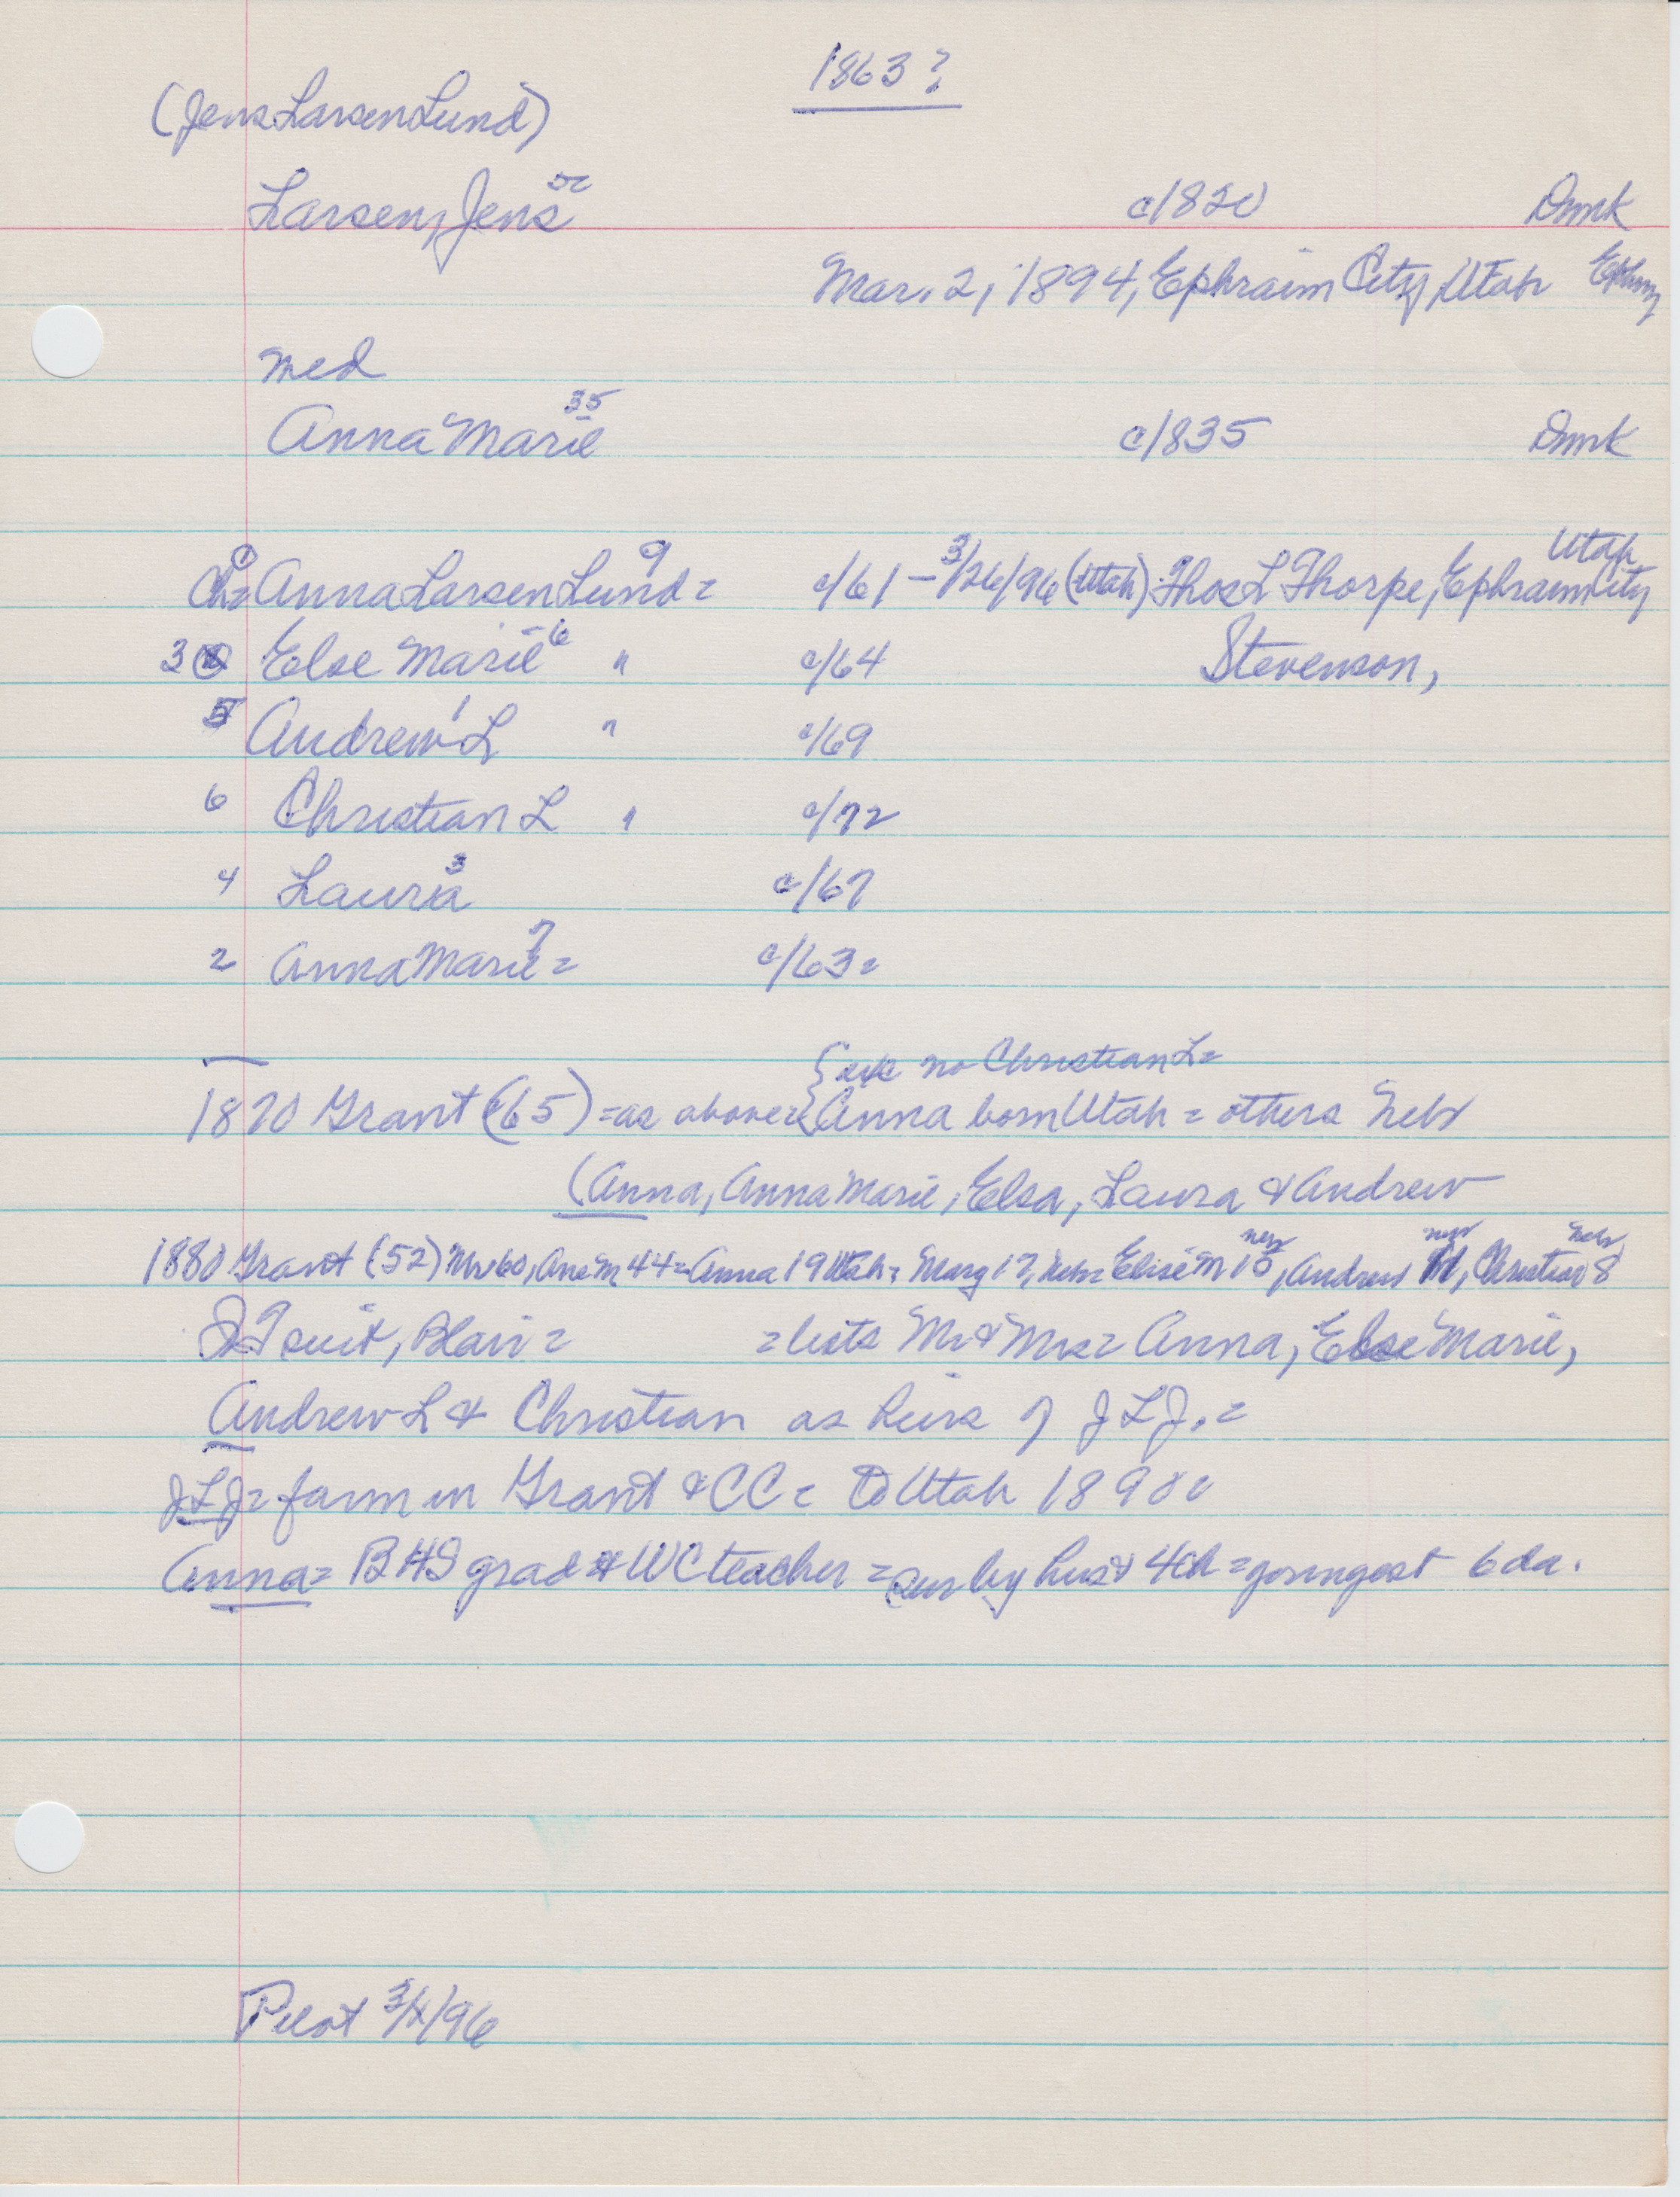 1863?
(Jens Larsen Lund)
Larsen, Jens 50 c/820 Dmk
Mar. 2, 1894, Ephraim City, Utah
med
Anna Marie 35 c/835 Dmk
Utah
Ch= Anna Larsen Lund 9 = c/61 – 3/26/96 (Utah) Thos L Thorpe, Ephraim City
3 Else Marie 6 " c/64 Stevenson,
5 Andrew L 1 " c/69
6 Christian L " c/72
4 Laura 3 c/67
2 Anna Marie 7 = c/63=
no Christian L=
1870 Grant (65) = as above = Anna born Utah = others Neb
(Anna, Anna Marie, Elsa, Laura & Andrew
1880 Grant (52) Mr 60, Ane M 44= Anna 19 Utah= Marg 17, Neb= Elise M 15 neb, Andrew 11 neb, Christian 8 neb
suit, Blair= =lists Mr & Mrs= Anna, Else Marie,
Andrew L & Christian as heirs of J L J.=
J L J= farm in Grant & CC= to Utah 1890
Anna= BHS grad & WC teacher = sur by hus & 4 ch = youngest 6 da.
Pilot 3/ /96